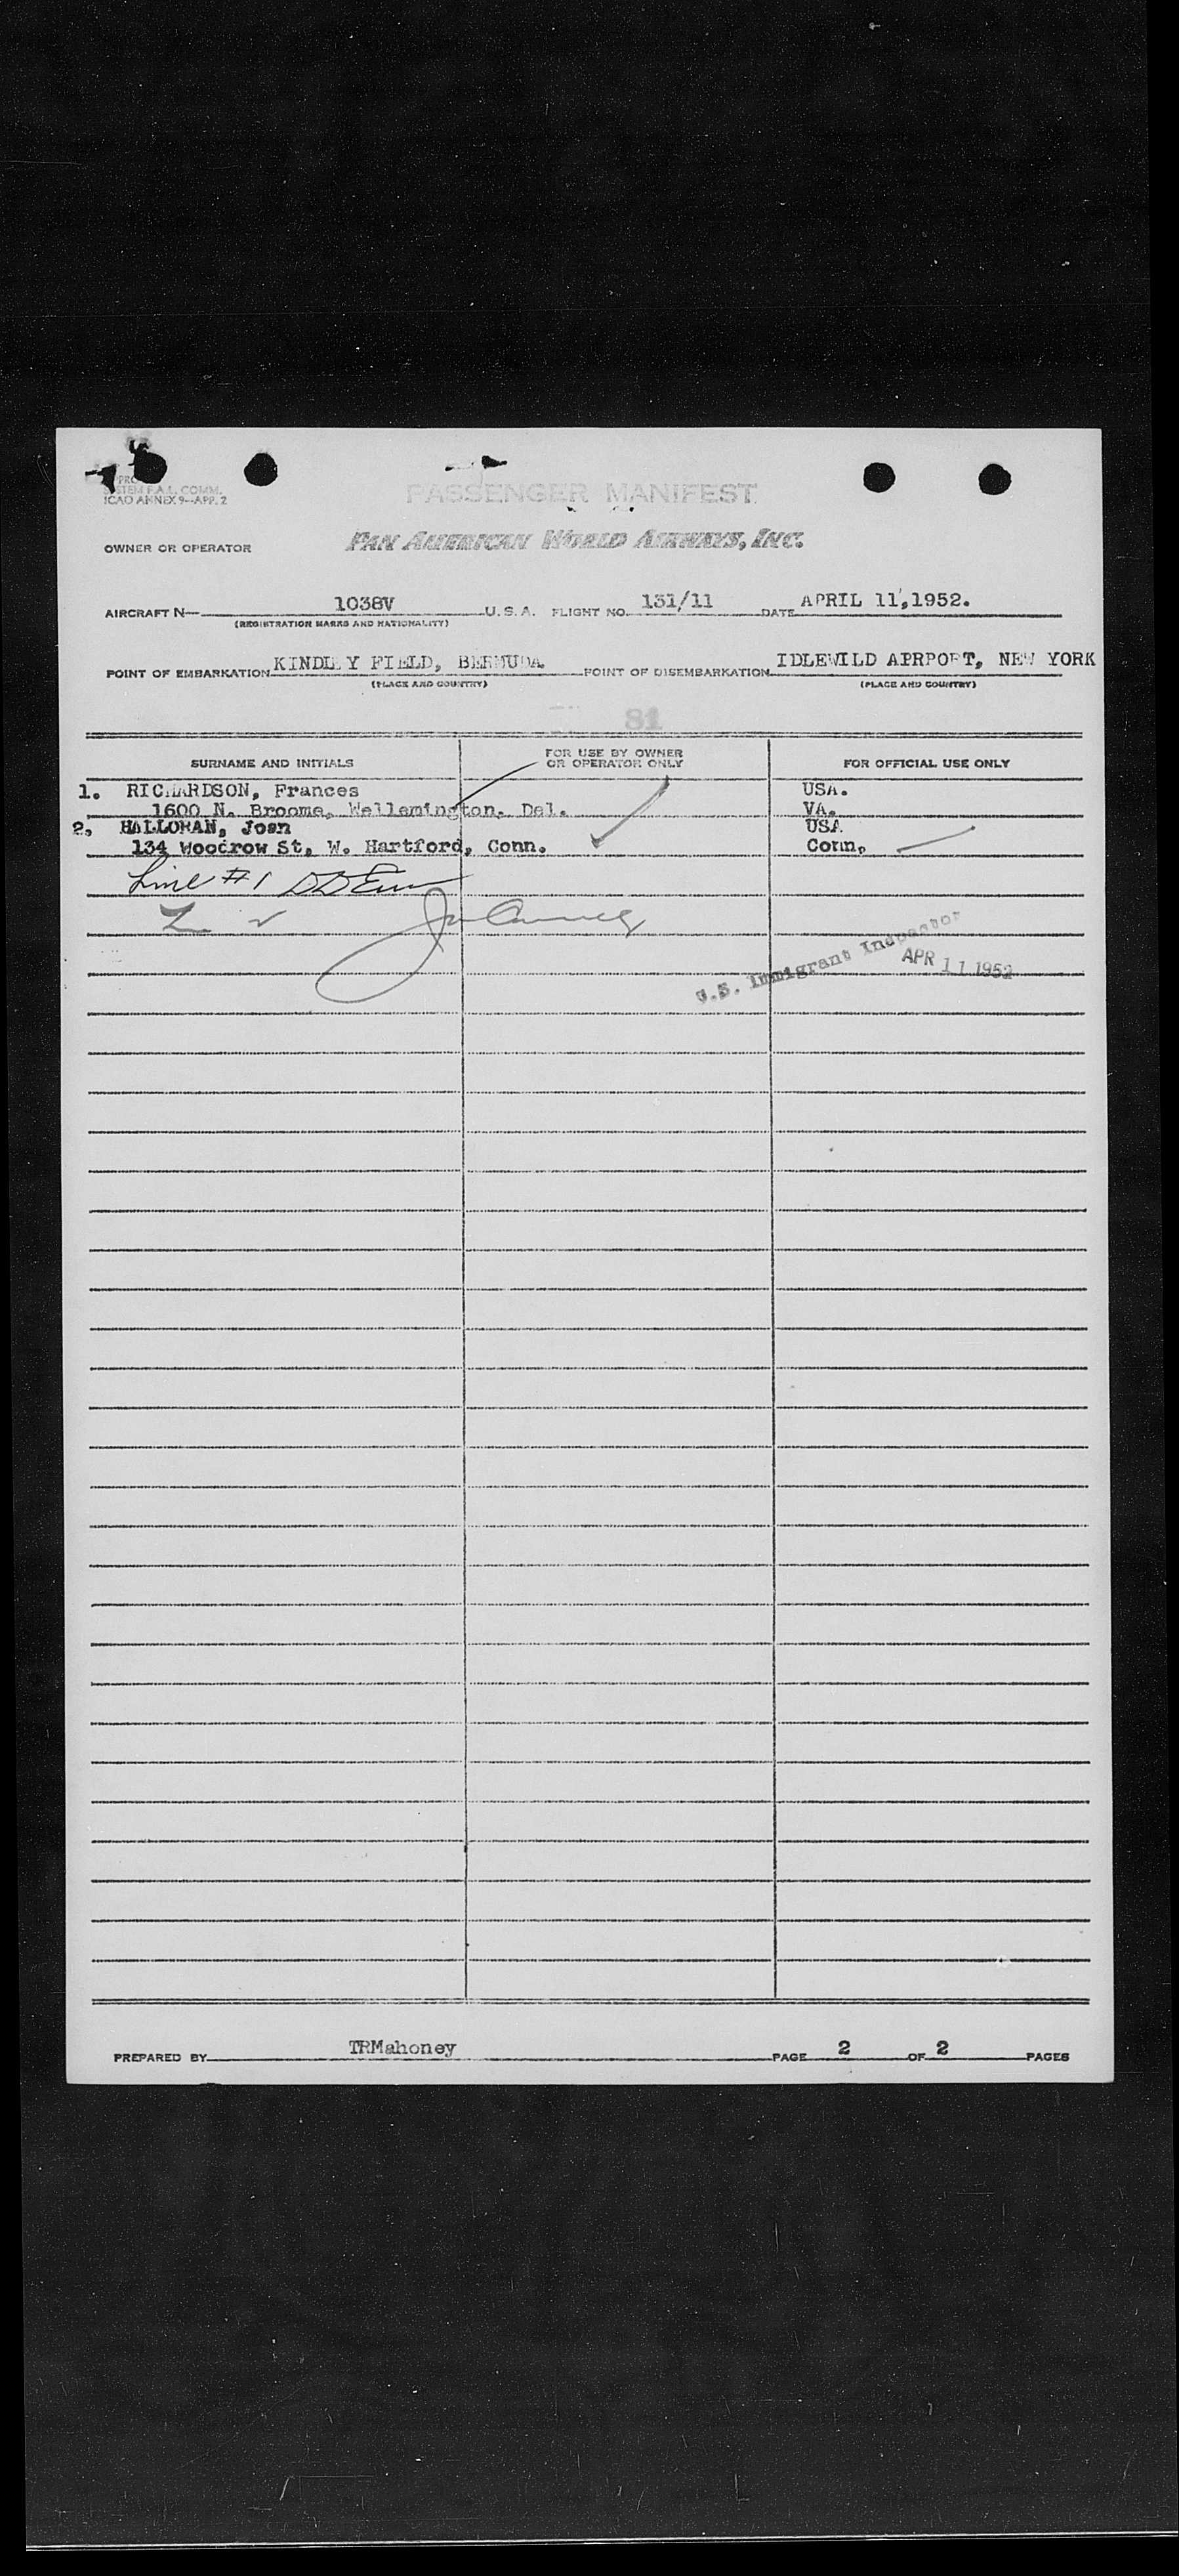 SYSTEM F.A.L. COMM.
ICAO ANNEX 9-APP. 2
PASSENGER MANIFEST
OWNER OR OPERATOR
PAN AMERICAN WORLD AIRWAYS, INC.
AIRCRAFT N- 1038V U.S.A. FLIGHT NO. 131/11 DATE APRIL 11,1952.
(REGISTRATION MARKS AND NATIONALITY)
POINT OF EMBARKATION KINDLEY FIELD, BERMUDA POINT OF DISEMBARKATION IDLEWILD AIRPORT, NEW YORK
(PLACE AND COUNTRY) (PLACE AND COUNTRY)
81
SURNAME AND INITIALS FOR USE BY OWNER OR OPERATOR ONLY FOR OFFICIAL USE ONLY
1. RICHARDSON, Frances USA.
1600 N. Broome, Wellemington, Del. VA.
2, HALLORAN, Joan USA
134 Woodrow St, W. Hartford, Conn. Conn,
Line #1
U.S. Immigrant Inspector
APR 11 1952
PREPARED BY TRMahoney PAGE 2 OF 2 PAGES